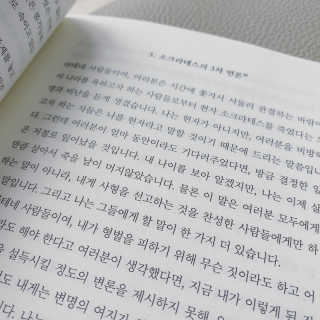 3. 소크라테스의 3차 변론
아테네 사람들이여, 여러분은 시간에 쫓겨서 서둘러 판결하는 바람에
이 나라를 욕하고자 하는 사람들로부터 현자 소크라테스를 죽였다는
명과 비난을 듣게 생겼습니다. 나는 현자가 아니지만, 여러분을 비방하
고자 하는 사람들은 나를 현자라고 말할 것이기 때문에 드리는 말씀입니
다. 그런데 여러분이 얼마 동안이라도 기다려주었다면, 방금 결정한 일
은 저절로 일어났을 것입니다. 내 나이를 보아 알겠지만, 나는 이제 살
만큼 살아서 죽을 날이 머지않았습니다. 물론 이 말은 여러분 모두에게
하는 말이 아니라, 내게 사형을 선고하는 것을 찬성한 사람들에게만 하
말입니다. 그리고 나는 그들에게 할 말이 한 가지 더 있습니다.
아테네 사람들이여, 내가 형벌을 피하기 위해 무슨 짓이라도 하고 어
도 해야 한다고 여러분이 생각했다면, 지금 내가 이렇게 된
설득시킬 정도의 변론을 제시하지 못해
도 내게는 변명의 여지가
니다. 나는